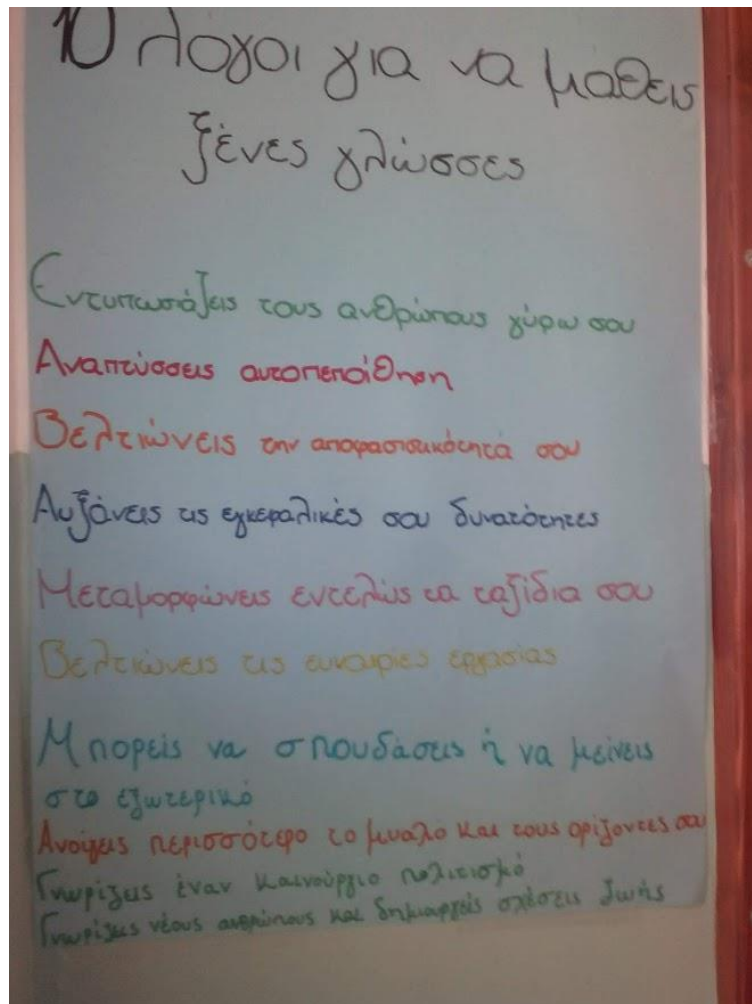 10 λογοι για να μαθεις
ξένες γλώσσες
Εντυπωσιάζεις τους ανθρώπους γύρω σου
Αναπτύσσεις αυτοπεποίθηση
Βελτιώνεις την αποφασιστικότητά σου
Αυξάνεις τις εγκεφαλικές σου δυνατότητες
Μεταμορφώνεις εντελώς τα ταξίδια σου
Βελτιώνεις τις ευκαιρίες εργασίας
Μπορείς να σπουδάσεις ή να μείνεις
στο εξωτερικό
Ανοίγεις περισσότερο το μυαλό και τους ορίζοντες σου
Γνωρίζεις έναν καινούργιο πολιτισμό
Γνωρίζεις νέους ανθρώπους και δημιουργείς σχέσεις ζωής